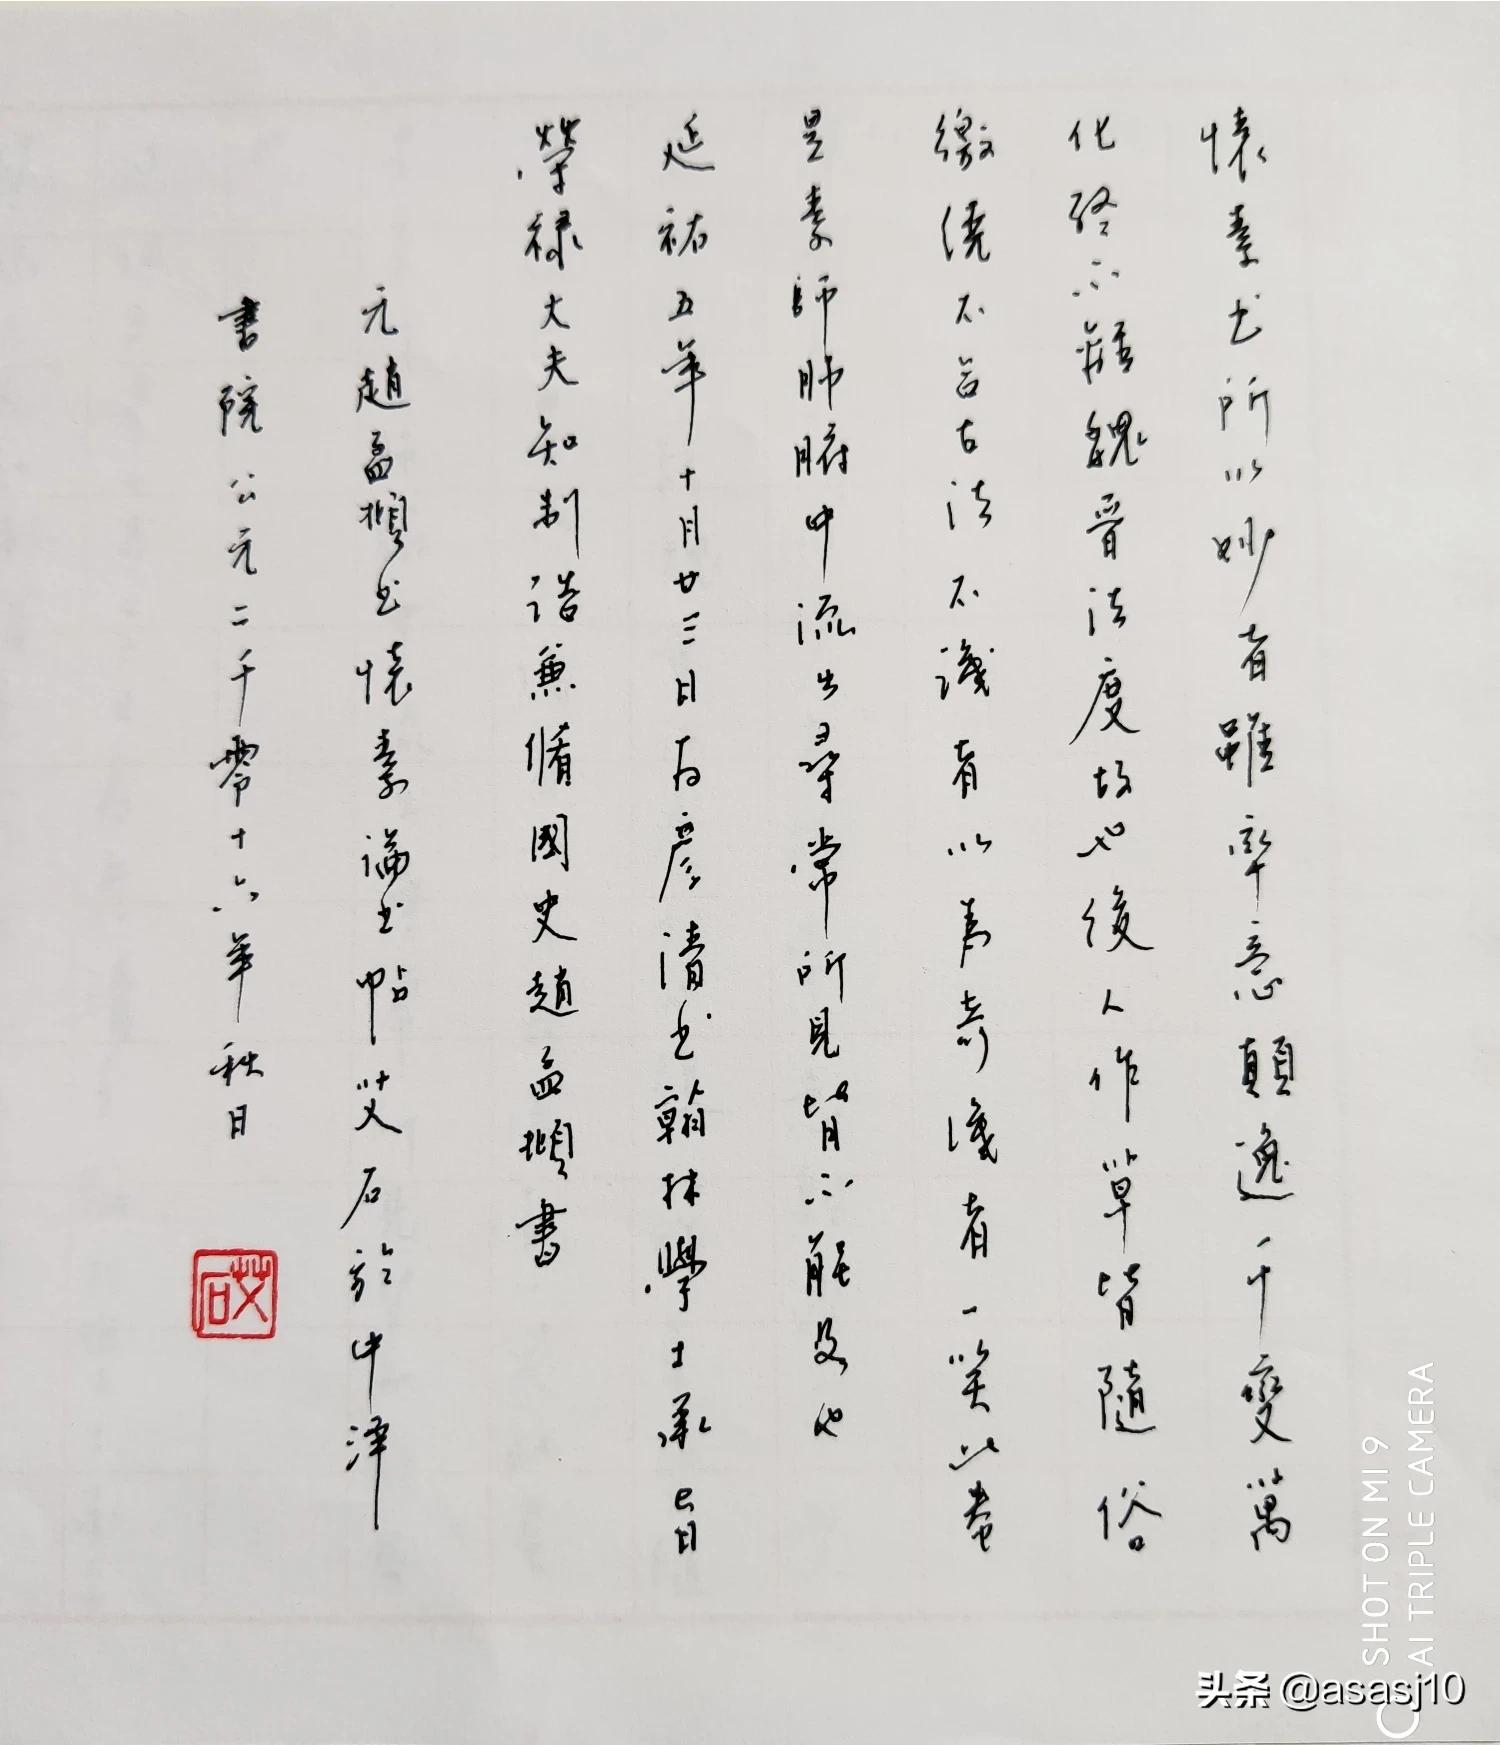 懷素書所以妙者雖率意顛逸千變萬
化終不離魏晉法度故也後人作草皆隨俗
繳繞不合古法不識者以為奇識者一笑此卷
是素師肺腑中流出尋常所見皆不能及也
延祐五年十月廿三日為彦清書翰林學士承旨
榮祿大夫知制誥兼脩國史趙孟頫書
元趙孟頫書懷素論書帖艾石於中澤
書院公元二千零十六年秋日
艾石
SHOT ON MI 9
AI TRIPLE CAMERA
头条 @asasj10